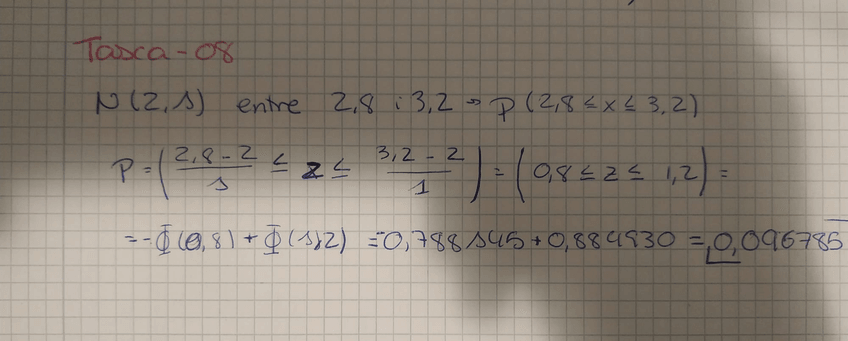 Tasca-08
N(2,1) entre 2,8 i 3,2 → P(2,8 ≤ x ≤ 3,2)
P = (2,8-2/1 ≤ z ≤ 3,2-2/1) = (0,8 ≤ z ≤ 1,2) =
= -Φ(0,8) + Φ(1,2) = -0,788145 + 0,884930 = 0,096785